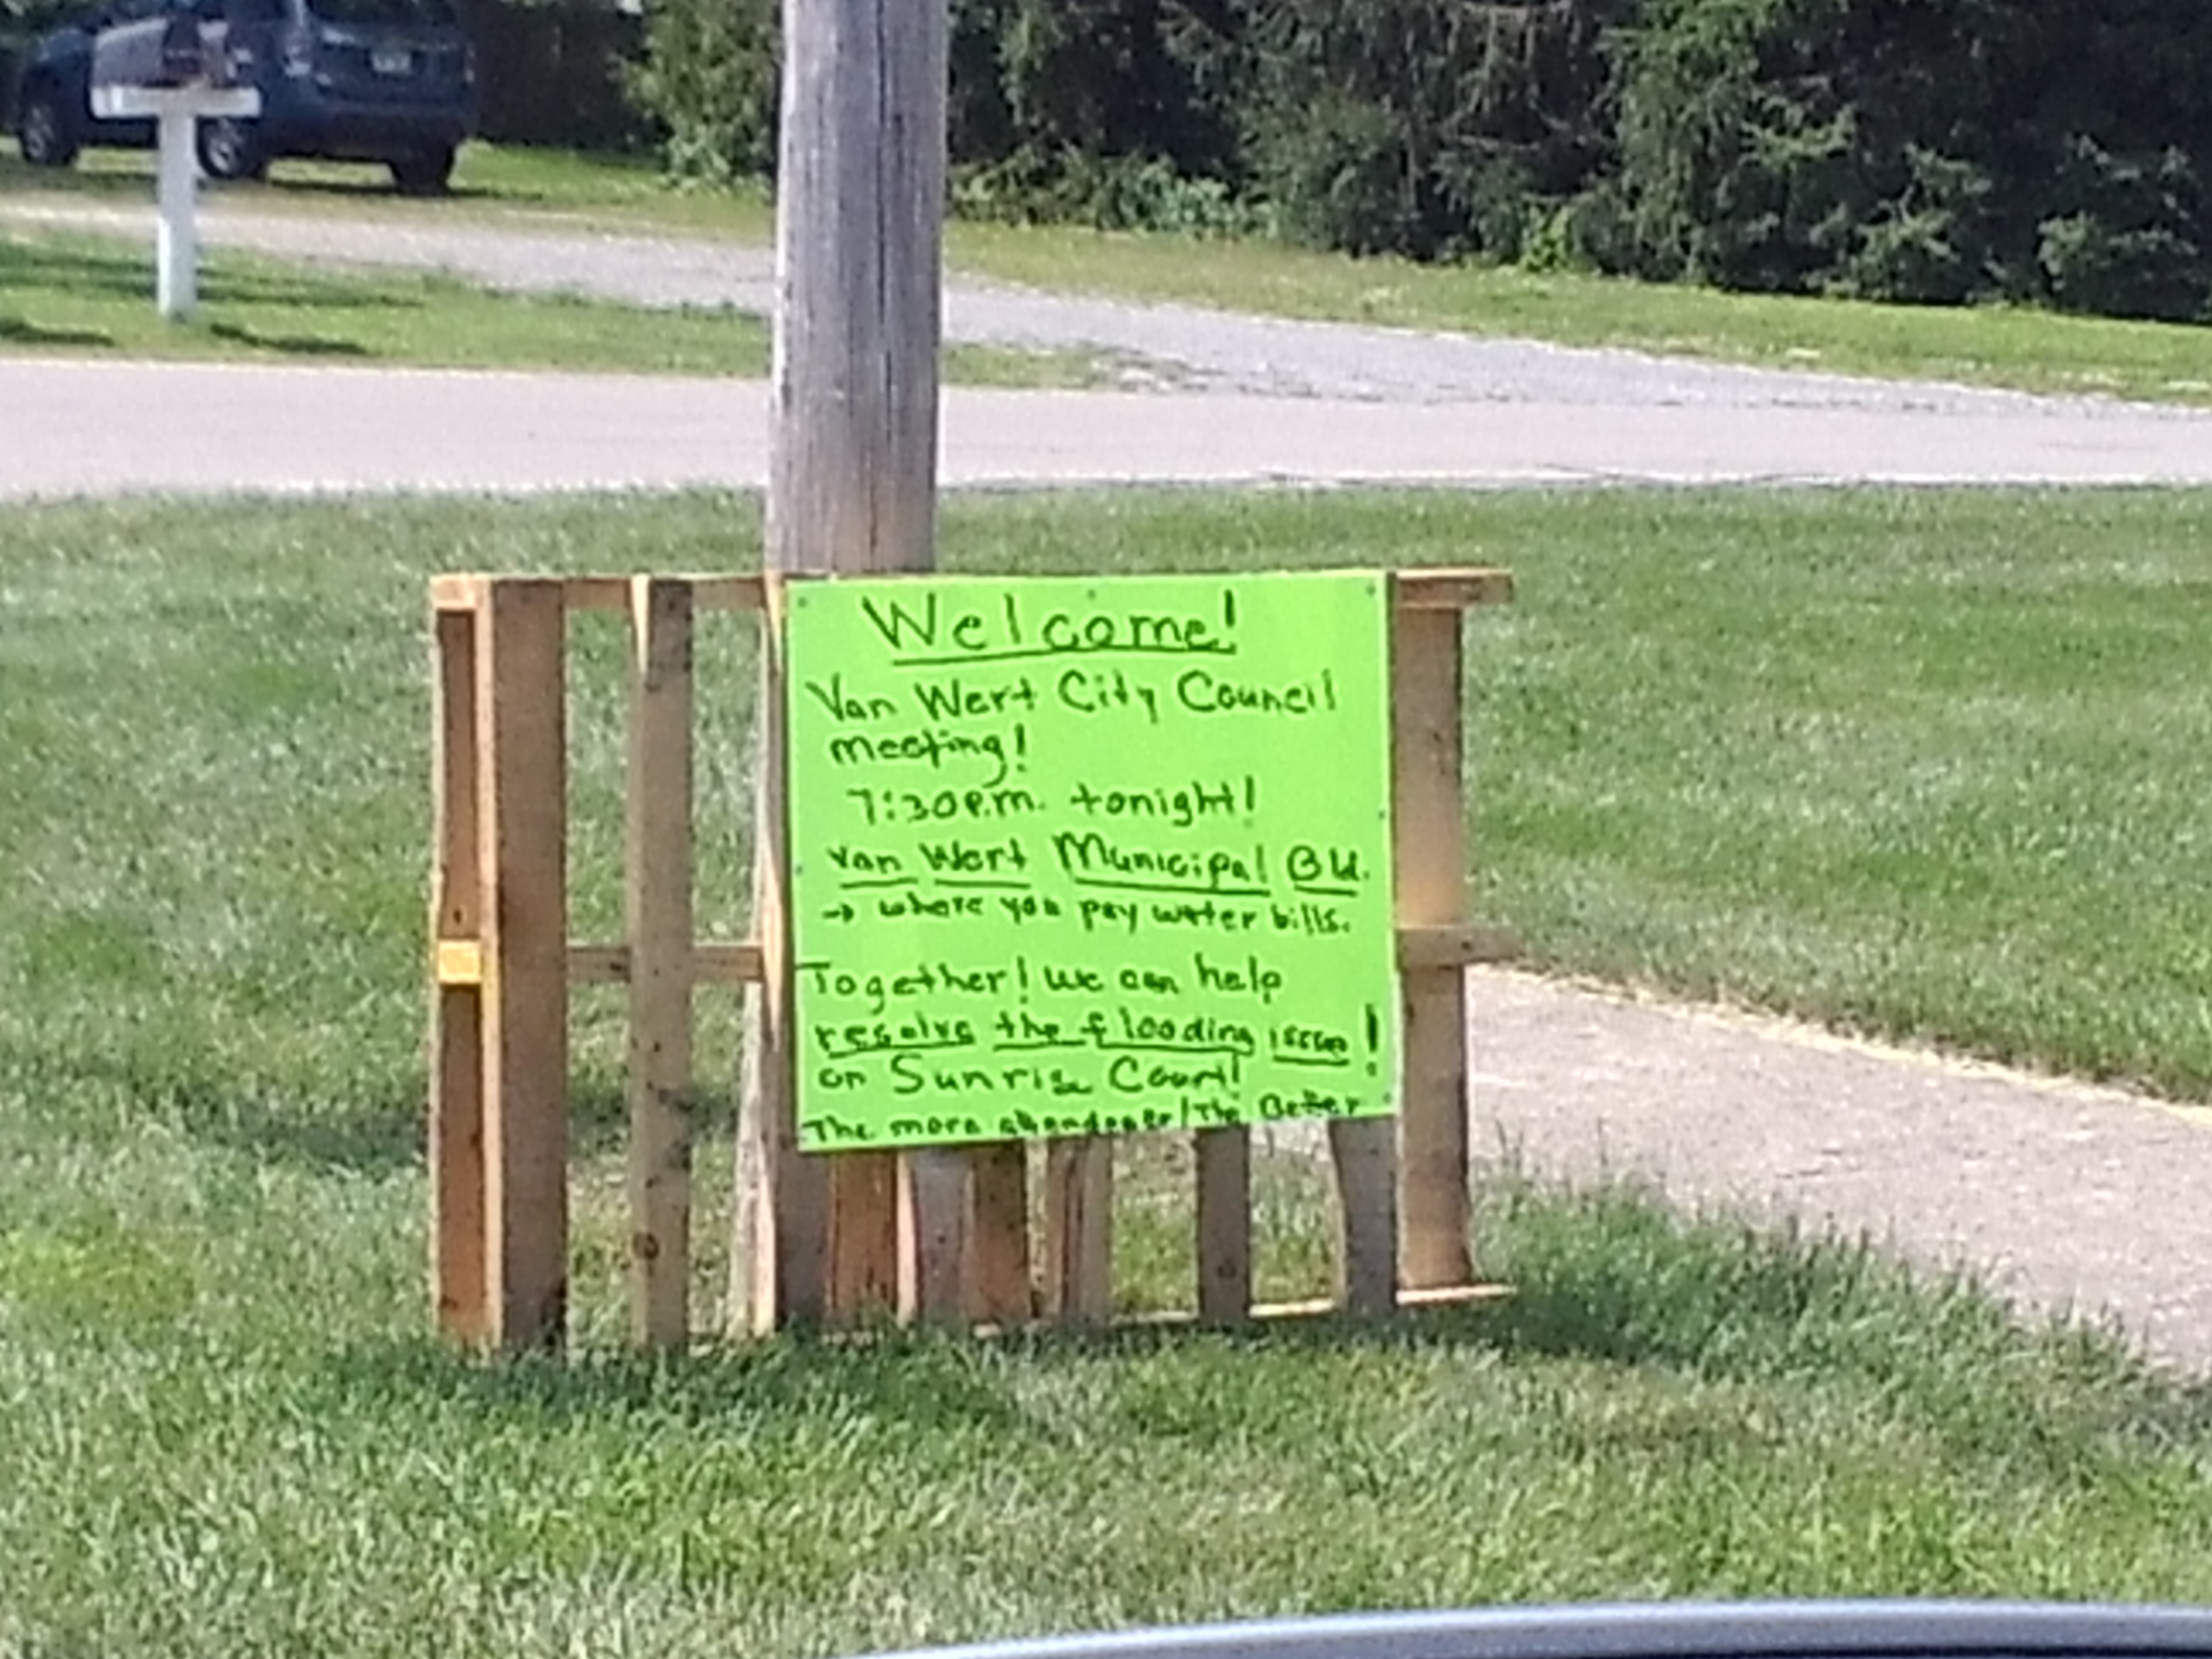 Welcome!
Van Wert City Council
meeting!
7:30 P.m. tonight!
Van Wert Municipal Bld.
→ where you pay water bills.
Together! we can help
resolve the flooding issue!
on Sunrise Court!
The more attendees/The Better